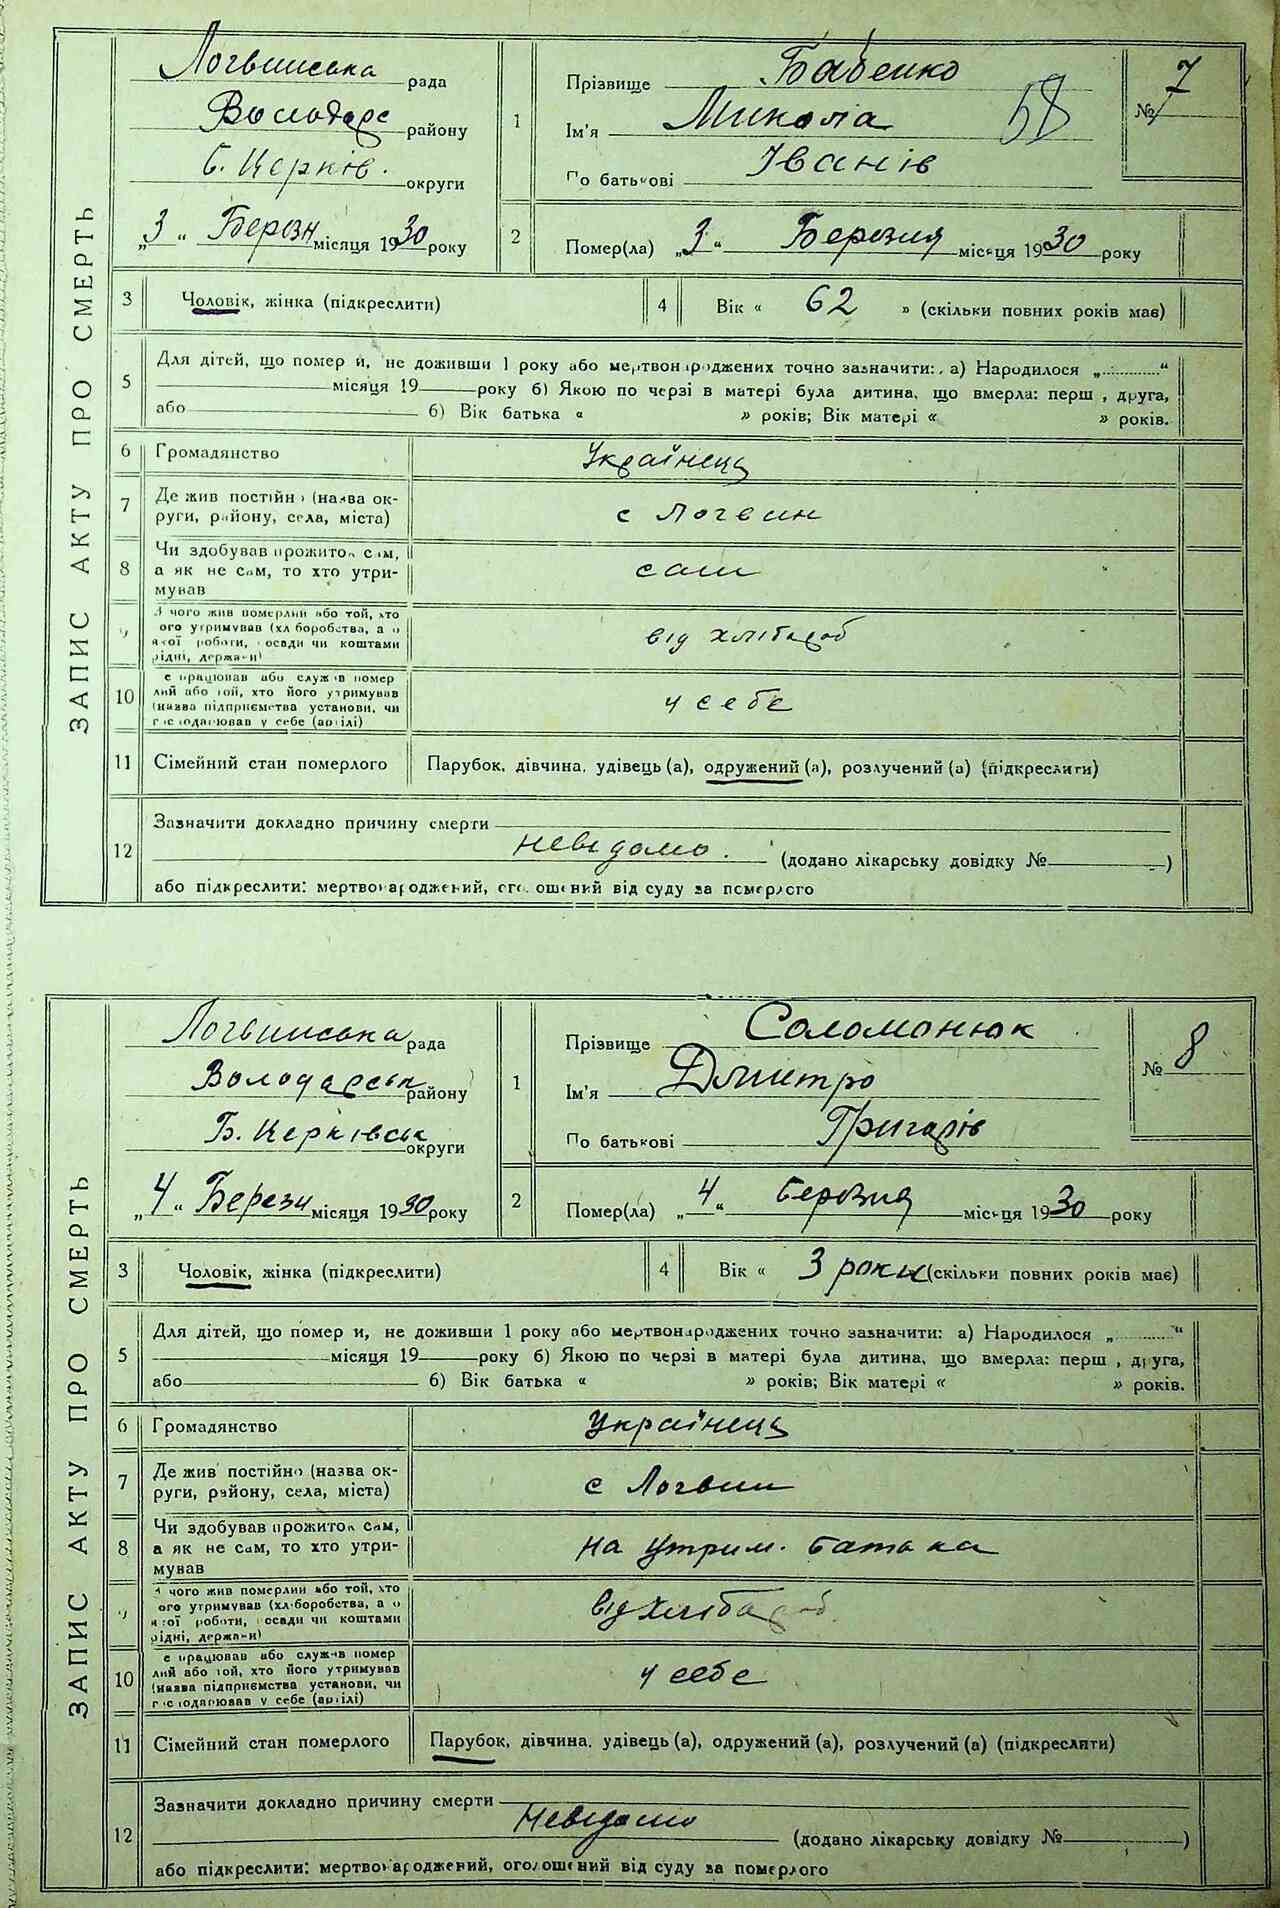 ЗАПИС АКТУ ПРО СМЕРТЬ
Логвинська рада
Володарс району
Б. Церків. округи
„3“ Березн місяця 1930 року
1
Прізвище Бабенко
Ім'я Микола 58
По батькові Іванів
№ 7
2
Помер(ла) „3“ Березня місяця 1930 року
3 Чоловік, жінка (підкреслити)
4 Вік « 62 » (скільки повних років має)
5
Для дітей, що померли, не доживши 1 року або мертвонароджених точно зазначити: а) Народилося „ “
місяця 19 року б) Якою по черзі в матері була дитина, що вмерла: перш , друга,
або б) Вік батька « » років; Вік матері « » років.
6 Громадянство Українець
7 Де жив постійно (назва ок-
руги, району, села, міста) с Логвин
8 Чи здобував прожиток сам,
а як не сам, то хто утри-
мував сам
9 З чого жив померлий або той, хто
його утримував (хліборобства, а о
якої роботи, посади чи коштами
рідні, держави) від хлібароб
10 е працював або служив помер
лий або той, хто його утримував
(назва підприємства установи, чи
господарював у себе (артілі) у себе
11 Сімейний стан померлого Парубок, дівчина, удівець (а), одружений (а), розлучений (а) (підкреслити)
12
Зазначити докладно причину смерти
невідомо. (додано лікарську довідку № )
або підкреслити: мертвонароджений, оголошений від суду за померлого
ЗАПИС АКТУ ПРО СМЕРТЬ
Логвинська рада
Володарськ району
Б. Церківськ округи
„4“ Березн місяця 1930 року
1
Прізвище Соломонюк
Ім'я Дмитро
По батькові Григорів
№ 8
2
Помер(ла) „4“ березня місяця 1930 року
3 Чоловік, жінка (підкреслити)
4 Вік « 3 роки (скільки повних років має)
5
Для дітей, що померли, не доживши 1 року або мертвонароджених точно зазначити: а) Народилося „ “
місяця 19 року б) Якою по черзі в матері була дитина, що вмерла: перш , друга,
або б) Вік батька « » років; Вік матері « » років.
6 Громадянство Українець
7 Де жив постійно (назва ок-
руги, району, села, міста) с Логвин
8 Чи здобував прожиток сам,
а як не сам, то хто утри-
мував на утрим. батька
9 З чого жив померлий або той, хто
його утримував (хліборобства, а о
якої роботи, посади чи коштами
рідні, держави) від хлібароб
10 е працював або служив помер
лий або той, хто його утримував
(назва підприємства установи, чи
господарював у себе (артілі) у себе
11 Сімейний стан померлого Парубок, дівчина, удівець (а), одружений (а), розлучений (а) (підкреслити)
12
Зазначити докладно причину смерти
Невідомо (додано лікарську довідку № )
або підкреслити: мертвонароджений, оголошений від суду за померлого